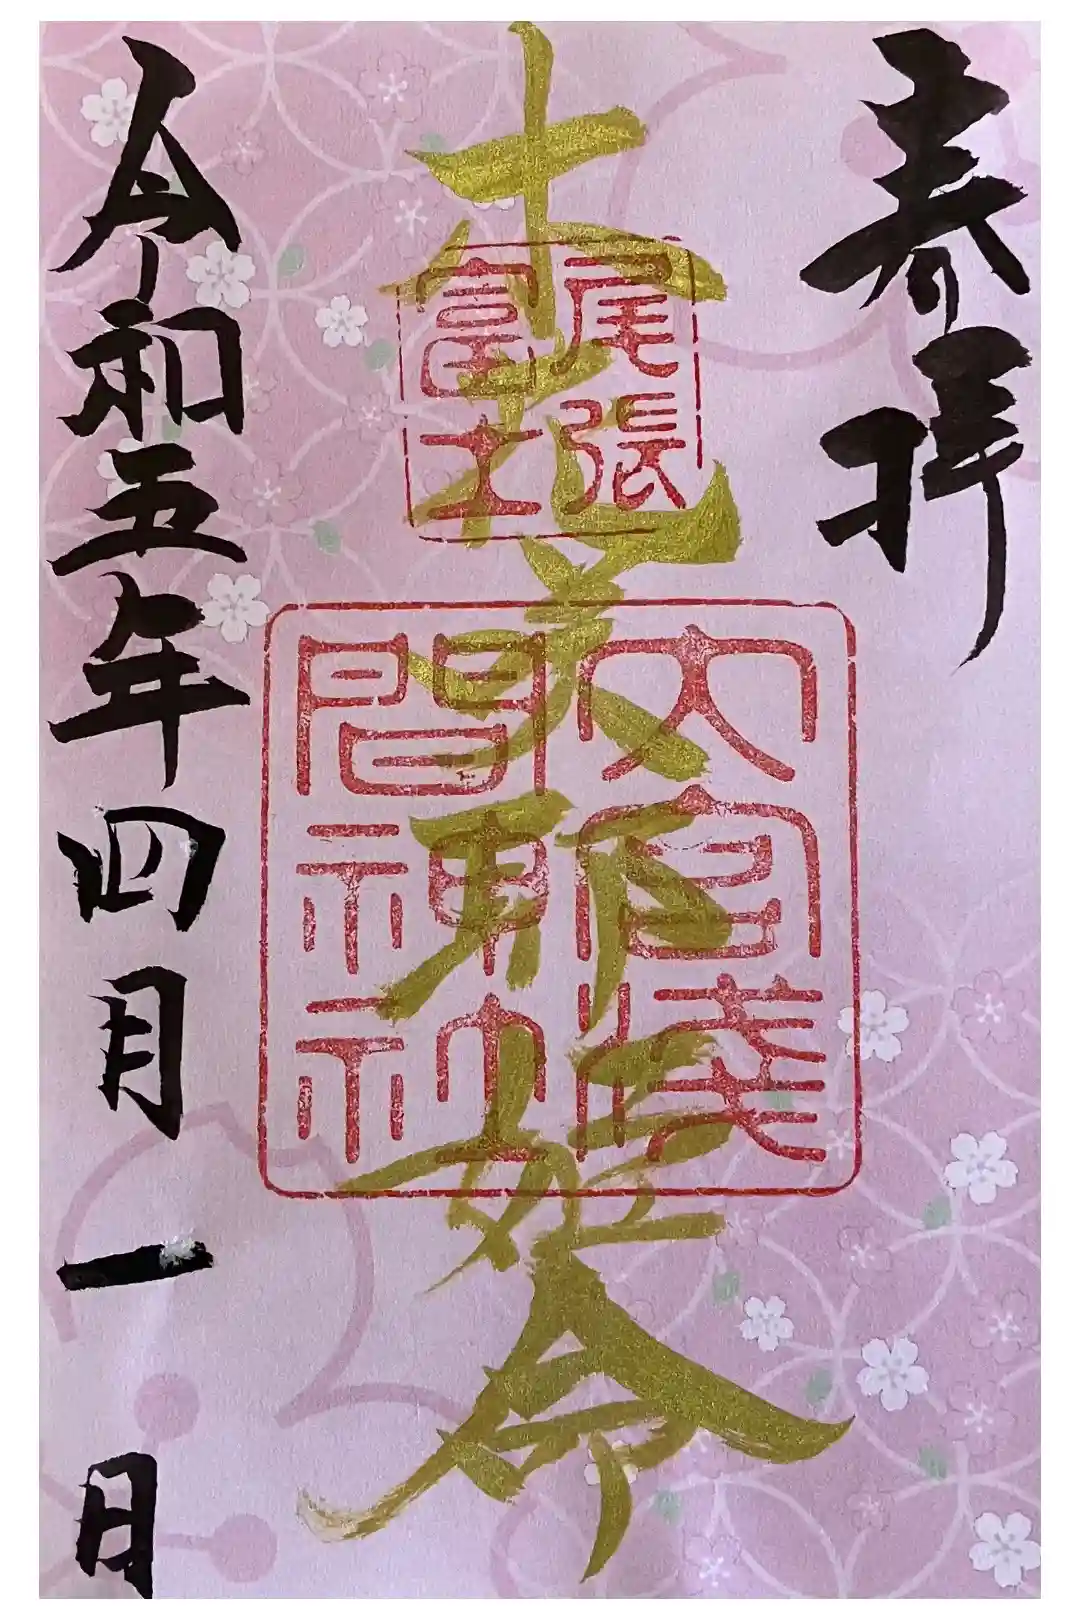 奉拝
木花咲耶姫命
尾張
冨士
大宮淺
間神社
令和五年四月一日